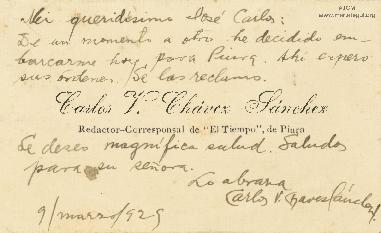 Mi queridísimo José Carlos:
De un momento a otro he decidido em-
barcarme hoy para Piura. Ahí espero
sus órdenes. Se las reclamo.
Carlos V. Chávez Sánchez
Redactor-Corresponsal de "El Tiempo", de Piura
Le deseo magnífica salud. Saludos
para su señora.
Lo abraza
Carlos V. Chavez Sánchez
9/marzo/929